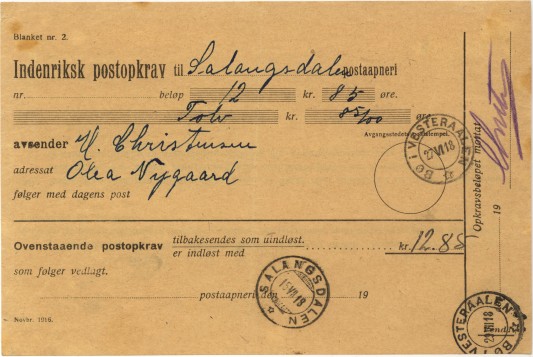 Blanket nr. 2.
Indenriksk postopkrav til Salangsdalen postaapneri
nr. beløp 12 kr. 85 øre.
Tolv kr. 85/00 øre
Avgangsstedets
avsender H. Christensen
adressat Olea Nygaard
følger med dagens post
BØ I VESTERAALEN
27 VI 18
Opkravsbeløpet mottat
19
Ovenstaaende postopkrav tilbakesendes som uindløst.
er indløst med kr. 12.85
som følger vedlagt.
postaapneri den 19
SALANGSDALEN
15 VII 18
BØ I VESTERAALEN
22 VII 18
Novbr. 1916.